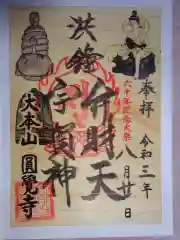 奉拝 令和三年
八月廿日
洪鐘
弁財天
宇賀神
大本山
圓覺寺